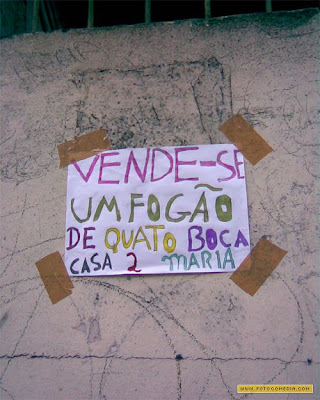 VENDE-SE
UM FOGÃO
DE QUATO BOCA
CASA 2 MARIA
WWW.FOTOCOMEDIA.COM